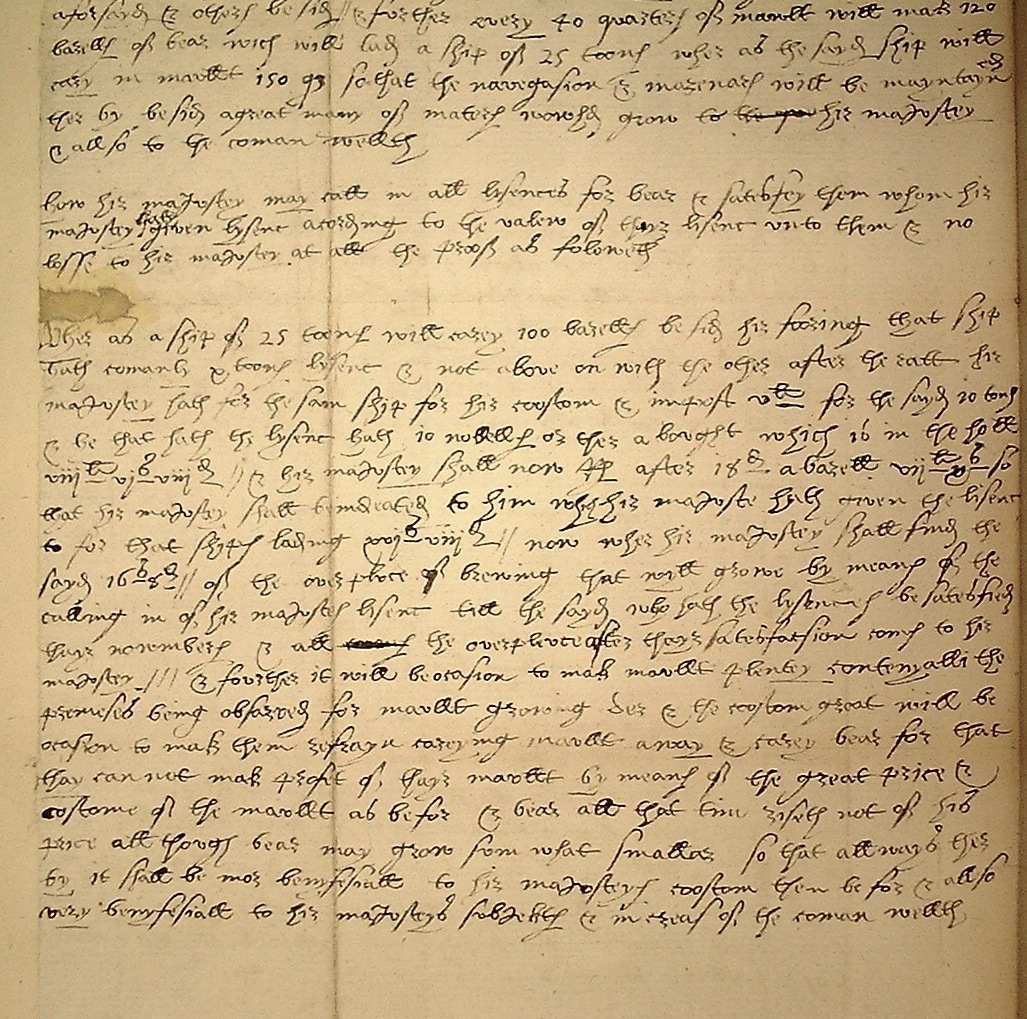 aforsayd & others be sid // & forther every 40 quarters of mavllt will mak 120
barells of bear wich will lad a ship of 25 toons wher as the sayd ship will
cary in mavllt 150 qr so that the navegasion & marenars will be mayntayned
ther by be sid a great many of maters now hid grow to his maiestey
& all so to the coman wellth
how his maiestey may call in all lysences for bear & satesfey them whom his
maiestey hath given lysenc acording to the valew of thayr lisenc vnto them & no
losse to his maiestey at all the proof as foloweth
Wher as a ship of 25 toons will carey 100 barells be sid his foring that ship
hath comanly x toons lysenc & not above on with the other after the ratt his
maiestey hath for the sam ship for his coostom & impost v ll for the sayd 10 tons
& he that hath the lysenc hath 10 nobells or ther a bought which is in the holl
viii ll vi s viii d // & his maiestey shall now after 18 d a barell vii ll x s so
that his maiestey shall be indeated to him which his maieste hath given the lisenc
to for that ships lading xvi s viii d // now wher his maiestey shall find the
sayd 16 s 8 d // of the overplvce of brewing that will growe by means of the
calling in of his maiestes lisenc till the sayd who hath the lysences be satesfied
thayr nowmbers & all the overplevce after thayr satesfacsion coms to his
maiestey /// & forther it will be ocasion to mak mavllt plentey contenyalli the
premeses being obsarved for mavllt growing der & the coostom great will be
ocasion to mak them refrayn careying mavllt away & carey bear for that
thay can not mak profet of thayr mavllt by means of the great price &
costome of the mavllt as befor & bear all that tim riseth not of his
price all thovgh bear may grow som what smallar so that allways ther
by it shall be mor benyfesiall to his maiesteys coostom then be for & all so
very benyfesiall to his maiesteys sobiekts & increas of the coman wellth